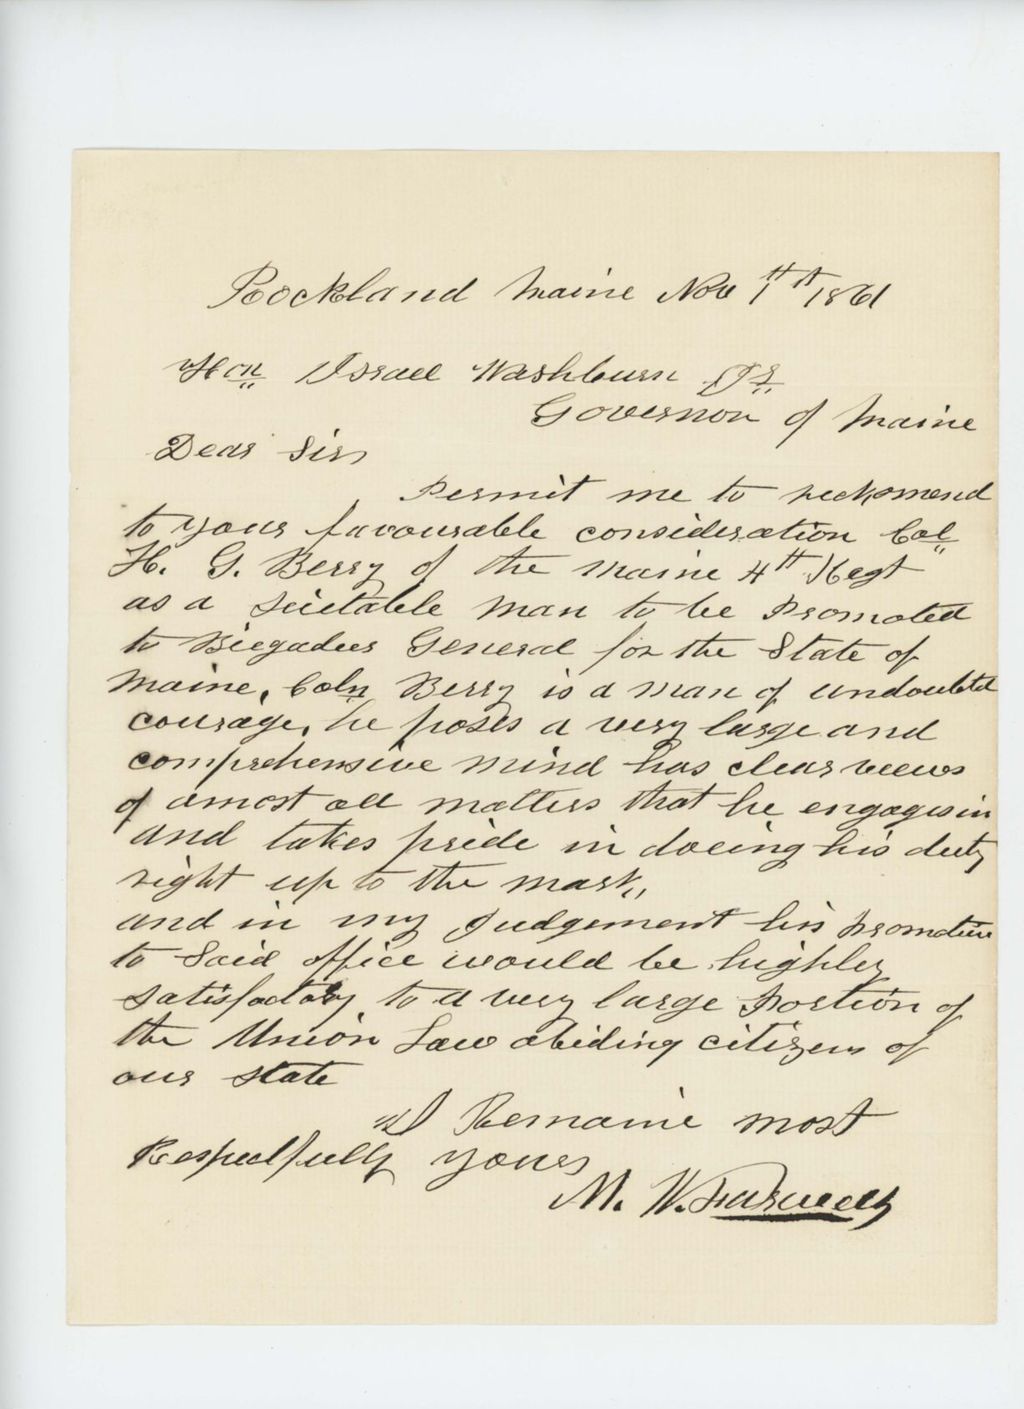 Rockland Maine Nov 1th 1861
Hon Israel Washburn Jr
Governon of Maine
Dear Sir
Permit me to reckomend
to your favourable consideration Col
H. G. Berry of the Maine 4th Regt
as a suietable man to be Promoted
to Briegadier General for the State of
Maine, Coln Berry is a man of undoubted
courage, he poses a very large and
comprehensive mind has clear veiws
of amost all matters that he engages in
and takes pride in doeing his duty
right up to the mark,
and in my Judgement his promotion
to Said office would be highley
satisfactory to a very large Portion of
the Union Law abiding citizens of
our state
I Remaine most
Respectfully yours
M. W. Farwell